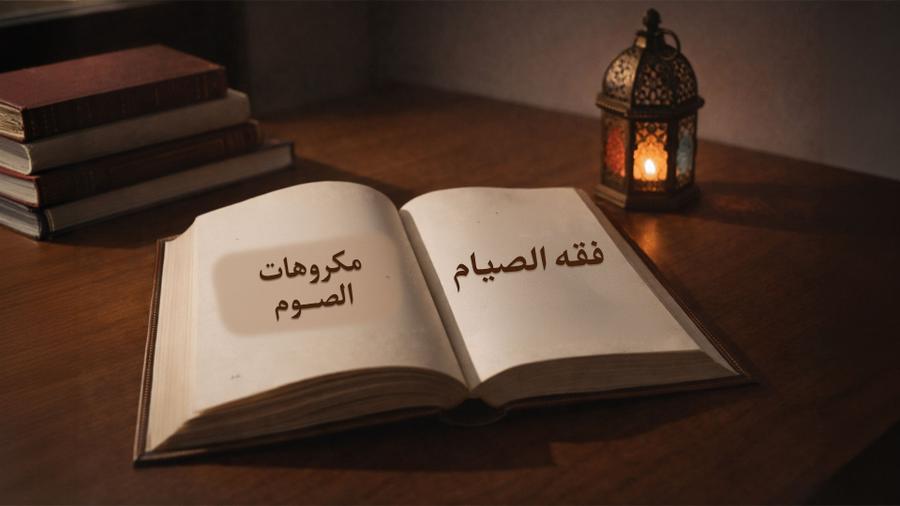 فقه الصيام
مكروهات
الصــوم